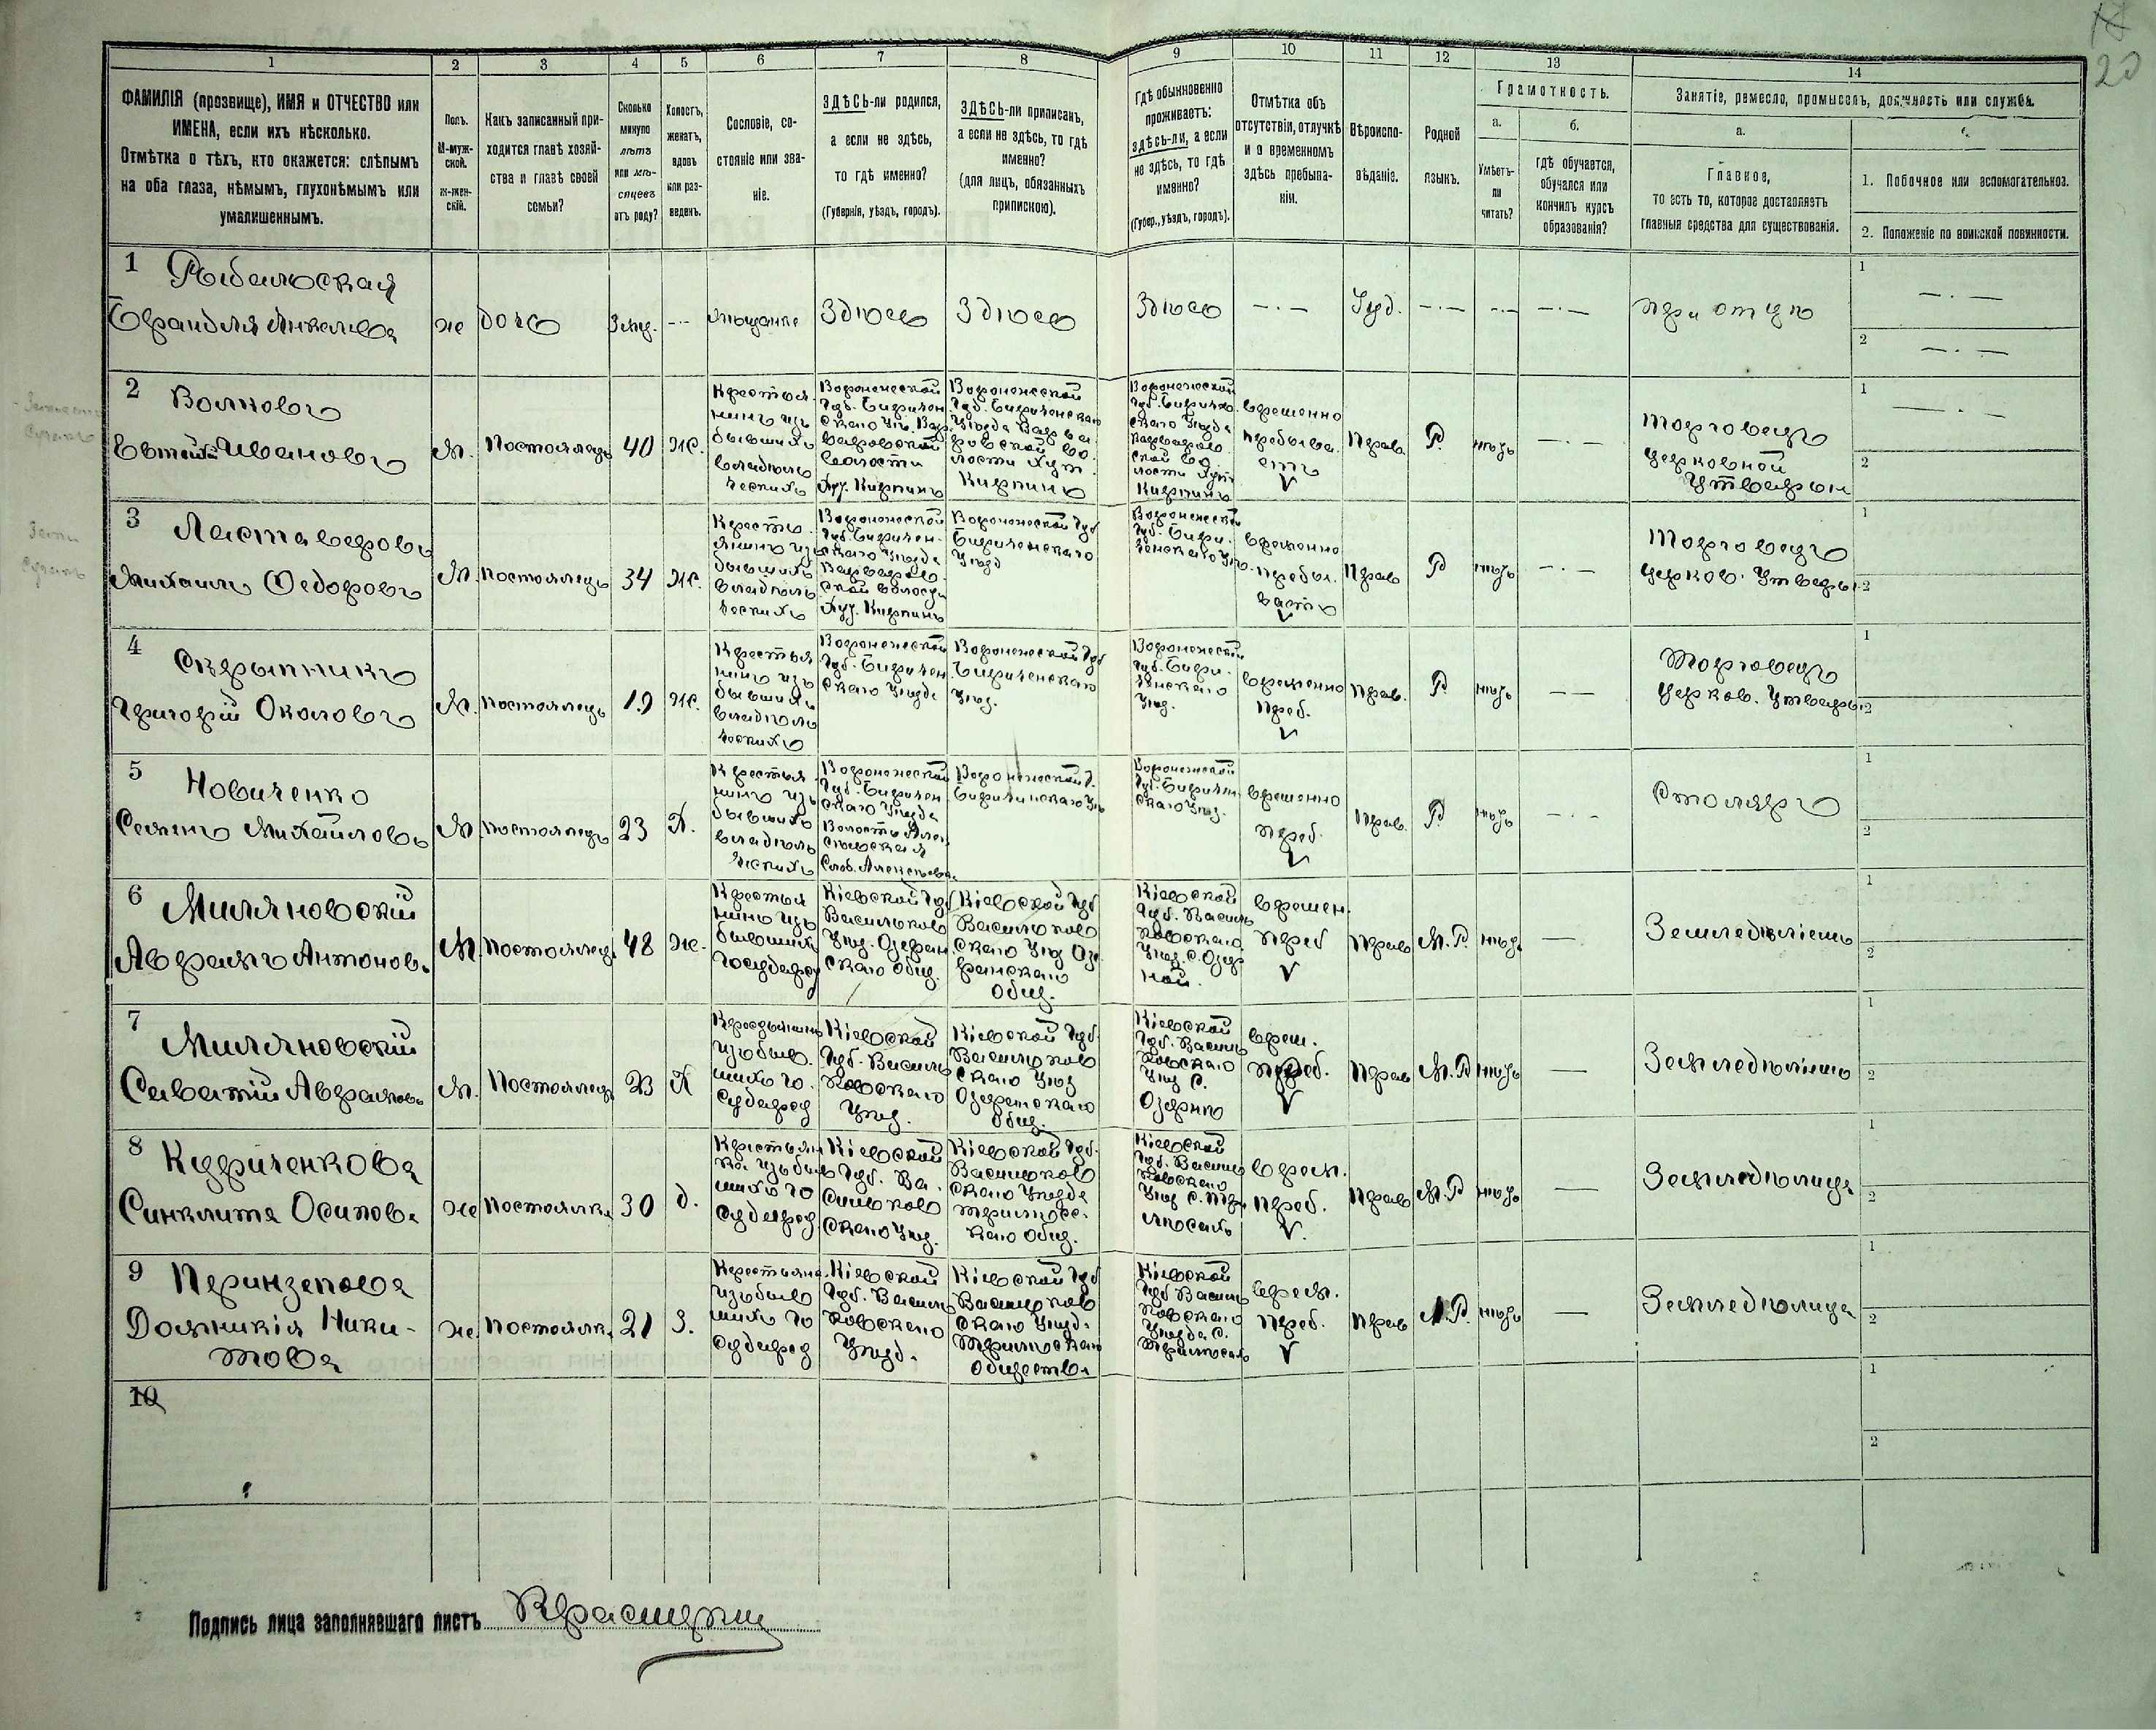 20
1 2 3 4 5 6 7 8 9 10 11 12 13 14
ФАМИЛІЯ (прозвище), ИМЯ и ОТЧЕСТВО или
ИМЕНА, если ихъ нѣсколько.
Отмѣтка о тѣхъ, кто окажется: слѣпымъ
на оба глаза, нѣмымъ, глухонѣмымъ или
умалишеннымъ.
Полъ.
М-муж-
ской.
ж-жен-
скій.
Какъ записанный при-
ходится главѣ хозяй-
ства и главѣ своей
семьи?
Сколько
минуло
лѣтъ
или мѣ-
сяцевъ
отъ роду?
Холостъ,
женатъ,
вдовъ
или раз-
веденъ.
Сословіе, со-
стояніе или зва-
ніе.
ЗДѢСЬ-ли родился,
а если не здѣсь,
то гдѣ именно?
(Губернія, уѣздъ, городъ).
ЗДѢСЬ-ли приписанъ,
а если не здѣсь, то гдѣ
именно?
(для лицъ, обязанныхъ
припискою).
Гдѣ обыкновенно
проживаетъ:
здѣсь-ли, а если
не здѣсь, то гдѣ
именно?
(Губер., уѣздъ, городъ).
Отмѣтка объ
отсутствіи, отлучкѣ
и о временномъ
здѣсь пребыва-
ніи.
Вѣроиспо-
вѣданіе.
Родной
языкъ.
Грамотность.
а.
Умѣетъ-
ли
читать?
б.
гдѣ обучается,
обучался или
кончилъ курсъ
образованія?
Занятіе, ремесло, промыселъ, должность или служба.
а.
Главное,
то есть то, которое доставляетъ
главныя средства для существованія.
1. Побочное или вспомогательное.
2. Положеніе по воинской повинности.
1 Рыбальская
ж дочь 3 мѣс. мѣщанка Здѣсь Здѣсь Здѣсь —·— Іуд. —·— —·— при отцѣ
1 —·—
2 —·—
2 Волковъ
Ивановъ М. Постоялецъ 40 Ж.
Крестья
нинъ изъ
бывшихъ
владѣль
ческихъ
Воронежской
Губ. Бирючен
скаго Уѣз. Вар
варовской
волости
Хут. Кирпинъ
Воронежской
Губ. Бирюченскаго
Уѣзда Варва
ровской во
лости Хут.
Кирпинъ
Воронежской
Губ. Бирюч.
скаго Уѣзда
Варваров
ской во
лости Хут.
Кирпинъ
временно
пребыва
етъ
V
Прав. Р. нѣтъ —·—
Торговецъ
церковной
Утварью
1 —·—
2
3 Ластаверовъ
Михаилъ Федоровъ М. Постоялецъ 34 Ж.
Кресть
янинъ изъ
бывшихъ
владѣль
ческихъ
Воронежской
Губ. Бирючен
скаго Уѣзда
Варваров
ской волости
Хут. Кирпинъ
Воронежской Губ
Бирюченскаго
Уѣзд
Воронежской
Губ. Бирю
ченскаго Уѣз.
временно
пребы
ваетъ
V
Прав Р нѣтъ —·—
Торговецъ
церков. Утварью
1
2
4 Скрыпникъ
Григорій М. Постоялецъ 19 Ж.
Крестья
нинъ изъ
бывшихъ
владѣль
ческихъ
Воронежской
Губ. Бирючен
скаго Уѣзда
Воронежской Губ
Бирюченскаго
Уѣз.
Воронежской
Губ. Бирю
ченскаго
Уѣз.
временно
преб.
V
Прав. Р. нѣтъ — —
Торговецъ
церков. Утварью
1
2
5 Новиченко
Семенъ Михайловъ М. Постоялецъ 23 Х.
Крестья
нинъ изъ
бывшихъ
владѣль
ческихъ
Воронежской
Губ. Бирючен
скаго Уѣзда
Волость Алек
сѣевская
Слоб. Алексѣевк.
Воронежской Г.
Бирюченскаго Уѣз
Воронежской
Губ. Бирючен
скаго Уѣз.
временно
преб.
V
Прав. Р. нѣтъ —·—
Столяръ
1
2
6 Миляновскій
Аврамъ Антонов. М. Постоялец. 48 Ж.
Крестья
нинъ изъ
бывших
Государ
Кіевской Губ
Васильков
Уѣз. Озерян
скаго Общ.
Кіевской Губ
Васильков
скаго Уѣз Озе
рянскаго
Общ.
Кіевской
Губ. Василь
ковскаго
Уѣз. С. Озер
ной.
времен.
преб
V
Прав М. Р. нѣтъ —
Земледѣліемъ
1
2
7 Миляновскій
Саватій Аврамовъ М. Постоялец. 23 Х
Крестьянинъ
изъ быв
шихъ го
сударст
Кіевской
Губ. Василь
ковскаго
Уѣз.
Кіевской Губ.
Васильков
скаго Уѣз
Озерянскаго
Общ.
Кіевской
Губ. Василь
ковскаго
Уѣз С.
Озерно
врем.
преб.
V
Прав М. Р нѣтъ —
Земледѣліемъ
1
2
8 Куриченкова
Синклита Осипова ж Постоялк. 30 д.
Крестьян
ка изъ быв
шихъ го
сударст
Кіевской
Губ. Ва
сильков
скаго Уѣз.
Кіевской Губ.
Васильков
скаго Уѣзда
Трилѣс
каго Общ.
Кіевской
Губ. Василь
ковскаго
Уѣз С. Три
лѣсахъ
врем.
преб.
V.
Прав М. Р нѣтъ —
Земледѣлица
1
2
9
Домникія Ники-
това
ж. Постоялк. 21 З.
Крестьянк.
изъ быв
шихъ го
сударст
Кіевской
Губ. Василь
ковскаго
Уѣзд.
Кіевской Губ
Васильков
скаго Уѣзд.
Трилѣскаго
общества
Кіевской
Губ Василь
ковскаго
Уѣзда С.
Трилѣсахъ
врем.
преб.
V
Прав М. Р. нѣтъ —
Земледѣлица
1
2
10
1
2
Подпись лица заполнявшаго листъ